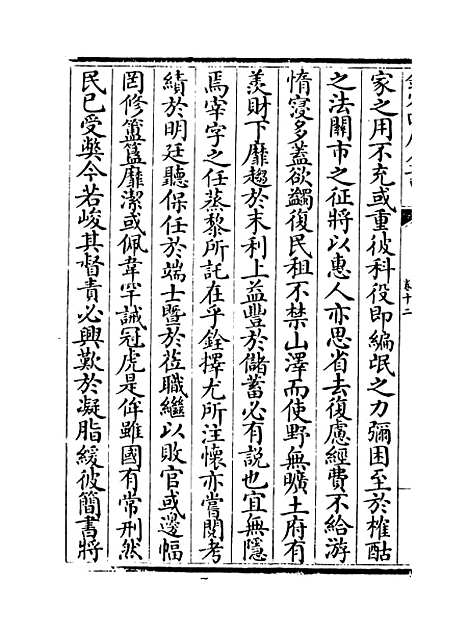 卷十二
家之用不充或重彼科役即編氓之力彌困至於榷酤
之法關市之征將以惠人亦思省去復慮經費不給游
惰寖多蓋欲蠲復民租不禁山澤而使野無曠土府有
羡財下靡趨於末利上益豐於儲蓄必有說也宜無隱
焉宰字之任蒸黎所託在乎銓擇尤所注懷亦嘗閱考
績於明廷聽保任於端士暨於蒞職繼以敗官或邊幅
罔修簠簋靡潔或佩韋罕誡冠虎是侔雖國有常刑然
民已受獘今若峻其督責必興歎於凝脂緩彼簡書將